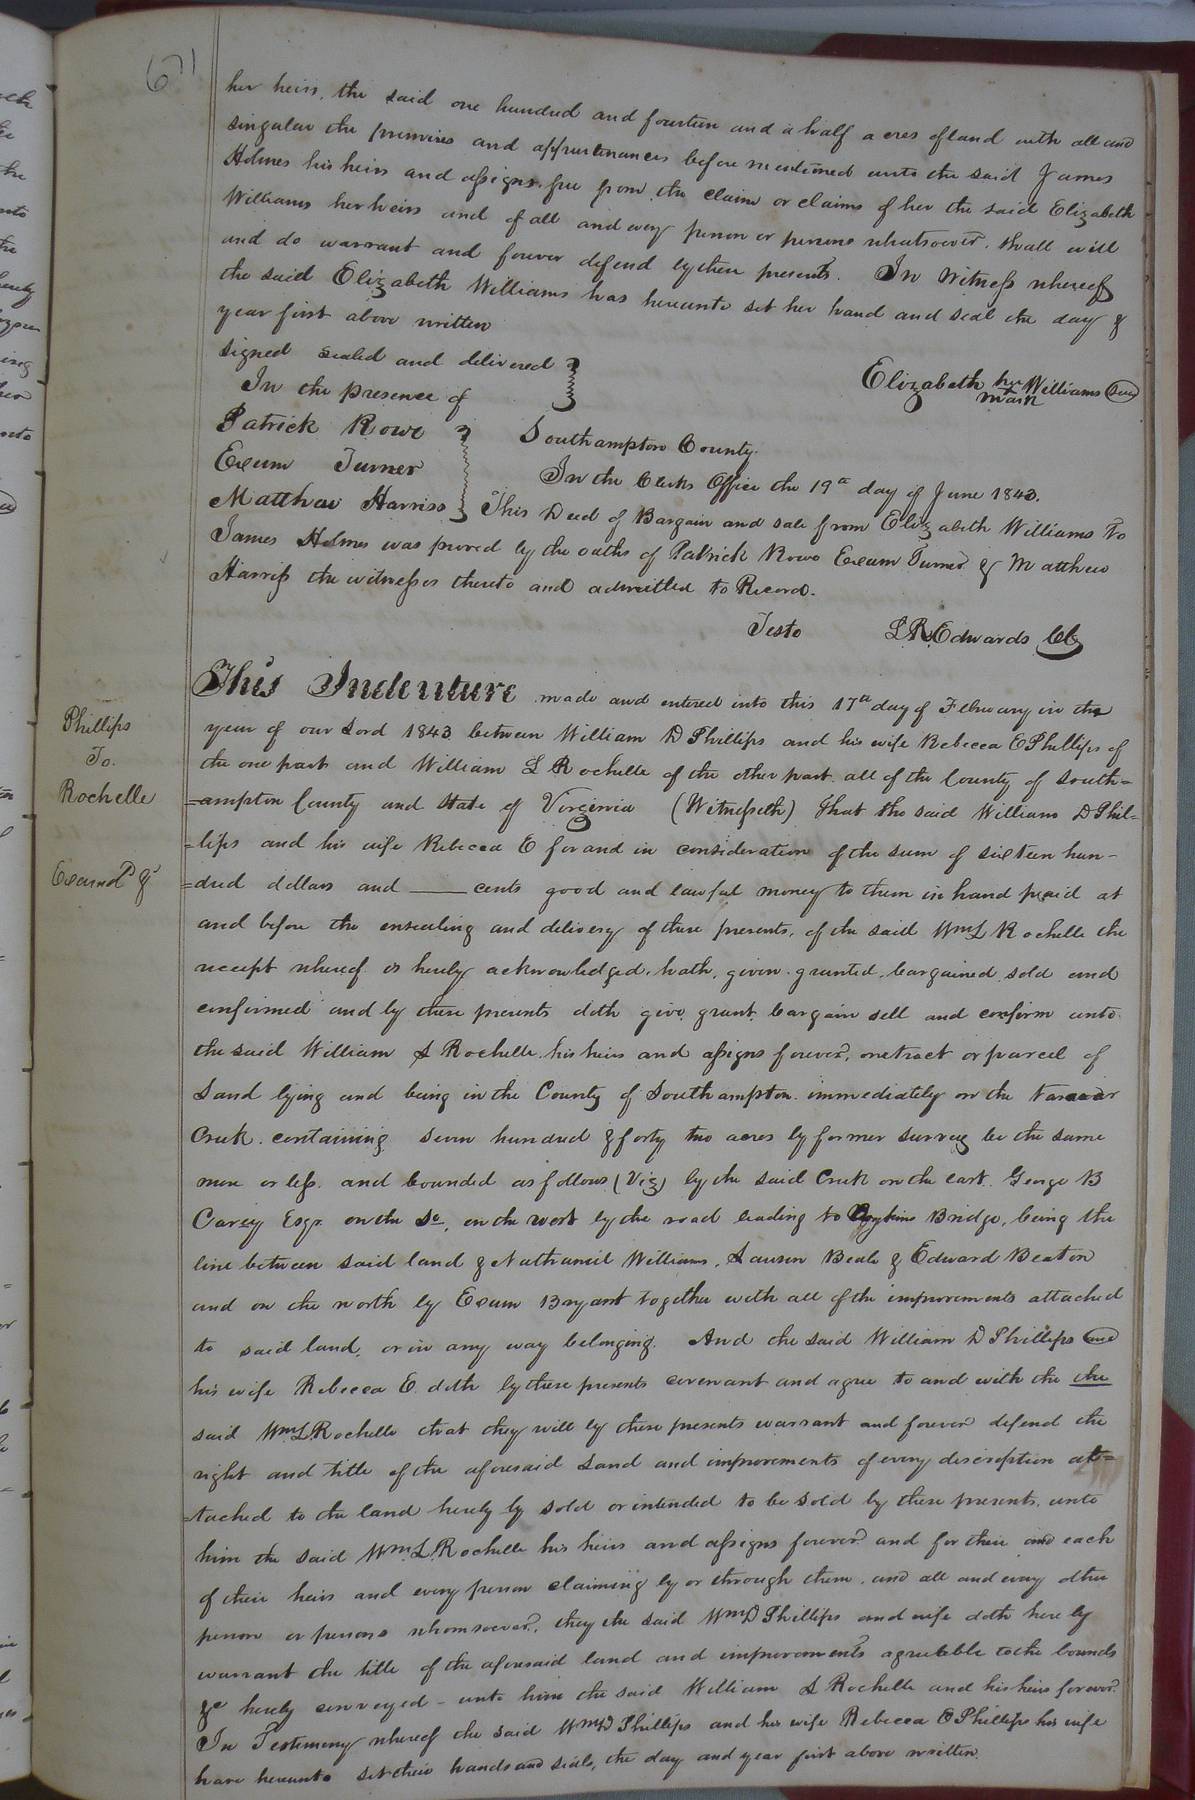 671
her heirs, the said one hundred and fourteen and a half acres of land with all and
singular the premises and appurtenances before mentioned unto the said James
Holmes his heirs and assigns free from the claim or claims of her the said Elizabeth
Williams her heirs and of all and every person or persons whatsoever, shall will
and do warrant and forever defend by these presents. In Witness whereof
the said Elizabeth Williams has hereunto set her hand and seal the day &
year first above written
signed sealed and delivered
In the presence of
Elizabeth her Williams Seal
mark
Patrick Rowe
Exum Turner
Matthew Harriss
Southampton County.
In the Clerks Office the 19th day of June 1843.
This Deed of Bargain and sale from Elizabeth Williams To
James Holmes was proved by the oaths of Patrick Rowe Exum Turner & Matthew
Harriss the witnesses thereto and admitted to Record.
Teste L. R. Edwards Clk
Phillips
To.
Rochelle
Examd &
This Indenture made and entered into this 17th day of February in the
year of our Lord 1843 between William D Phillips and his wife Rebecca E Phillips of
the one part and William L Rochelle of the other part. all of the County of South=
=ampton County and State of Virginia (Witnesseth) That the said William D Phil=
=lips and his wife Rebecca E for and in consideration of the sum of sixteen hun-
=dred dollars and ___ cents good and lawful money to them in hand paid at
and before the ensealing and delivery of these presents, of the said Wm L Rochelle the
receipt whereof is hereby acknowledged, hath, given, granted, bargained, sold and
confirmed and by these presents doth give, grant, bargain sell and confirm unto
the said William L Rochelle, his heirs and assigns forever, one tract or parcel of
Land lying and being in the County of Southampton immediately on the
Creek, containing seven hundred & forty two acres by former survey be the same
more or less. and bounded as follows (Viz) by the said Creek on the east. George B
Carey Esqr. on the So, on the west by the road leading to Bridge, being the
line between said land & Nathaniel Williams, Lawson Beale & Edward Beaton
and on the north by Exum Bryant together with all of the improvements attached
to said land, or in any way belonging. And the said William D Phillips and
his wife Rebecca E. doth by these presents covenant and agree to and with the the
said Wm L. Rochelle that they will by these presents warrant and forever defend the
right and title of the aforesaid Land and improvements of every description at=
=tached to the land hereby by sold or intended to be sold by these presents, unto
him the said Wm. L. Rochelle his heirs and assigns forever and for their and each
of their heirs and every person claiming by or through them, and all and every other
person or persons whomsoever, they the said Wm D Phillips and wife doth here by
warrant the title of the aforesaid land and improvements agreeable to the bounds
&c hereby conveyed - unto him the said William L Rochelle and his heirs forever.
In Testimony whereof the said Wm D Phillips and his wife Rebecca E Phillips his wife
have hereunto set their hands and seals, the day and year first above written.